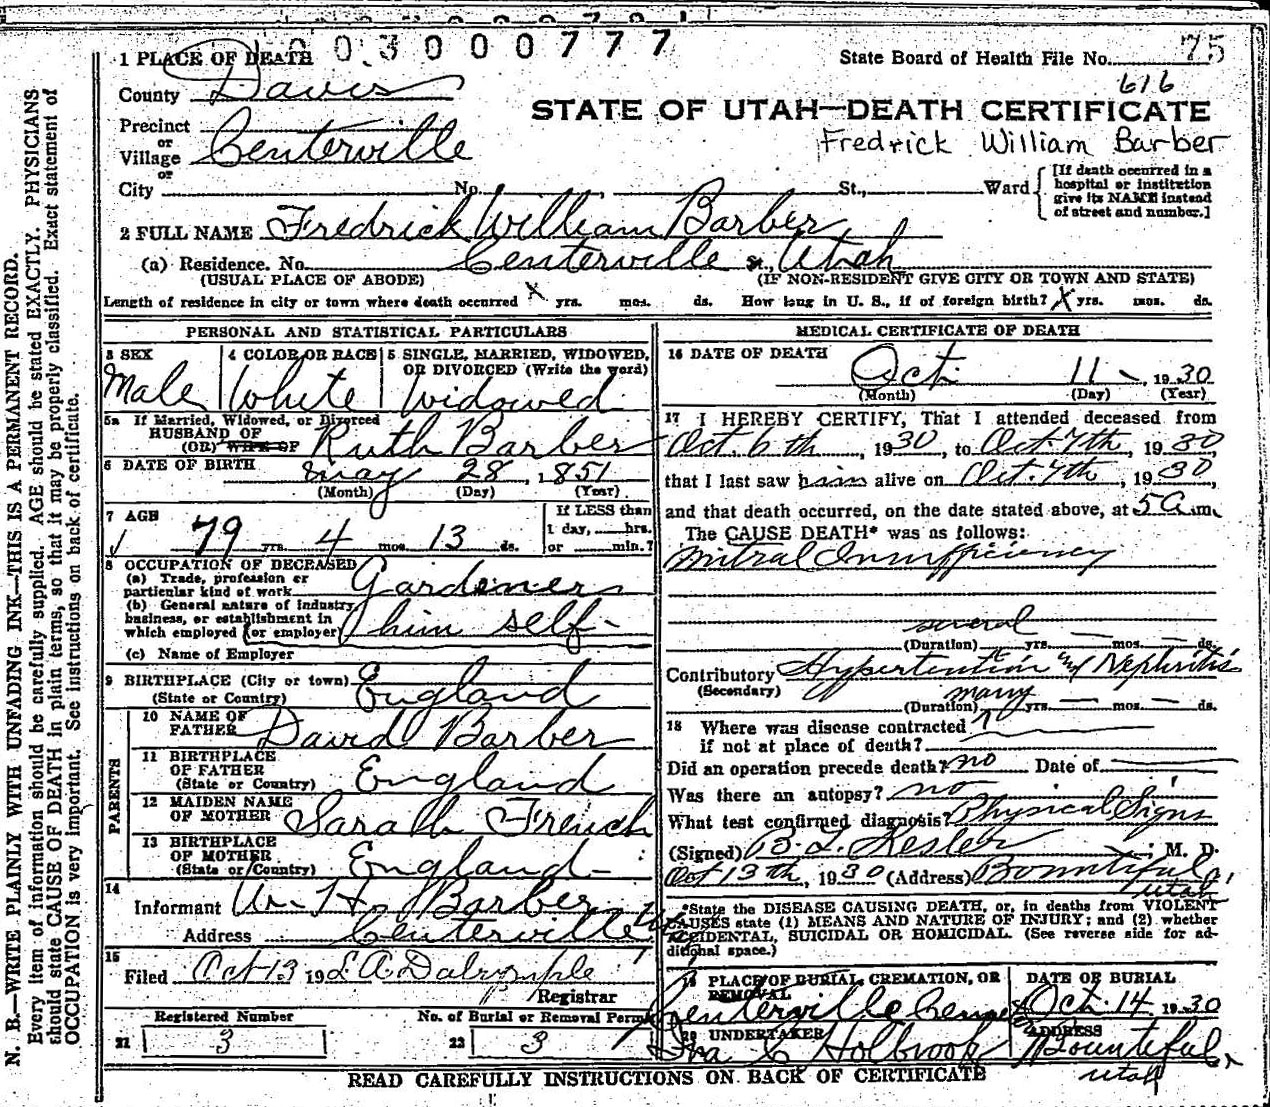 003000777
1 PLACE OF DEATH
State Board of Health File No. 75
616
County Davis
STATE OF UTAH—DEATH CERTIFICATE
Precinct
or
Village Centerville
or
Fredrick William Barber
City No. St., Ward
[If death occurred in a
hospital or institution
give its NAME instead
of street and number.]
2 FULL NAME Fredrick William Barber
(a) Residence. No. Centerville St., Utah
(USUAL PLACE OF ABODE) (IF NON-RESIDENT GIVE CITY OR TOWN AND STATE)
Length of residence in city or town where death occurred X yrs. mos. ds. How long in U. S., if of foreign birth? X yrs. mos. ds.
PERSONAL AND STATISTICAL PARTICULARS
3 SEX 4 COLOR OR RACE 5 SINGLE, MARRIED, WIDOWED,
OR DIVORCED (Write the word)
Male White Widowed
5a If Married, Widowed, or Divorced
HUSBAND OF
(OR) WIFE OF Ruth Barber
6 DATE OF BIRTH May 28, 1851
(Month) (Day) (Year)
7 AGE
79 yrs. 4 mos. 13 ds.
If LESS than
1 day, hrs.
or min.?
8 OCCUPATION OF DECEASED
(a) Trade, profession or
particular kind of work Gardener
(b) General nature of industry
business, or establishment in
which employed (or employer) him self
(c) Name of Employer
9 BIRTHPLACE (City or town)
(State or Country) England
PARENTS
10 NAME OF
FATHER David Barber
11 BIRTHPLACE
OF FATHER
(State or Country) England
12 MAIDEN NAME
OF MOTHER Sarah French
13 BIRTHPLACE
OF MOTHER
(State or Country) England
14
Informant Wm H. Barber
Address Centerville Utah
15
Filed Oct 13 19 L A Dalrymple
Registrar
Registered Number No. of Burial or Removal Permit
21 3 22 3
MEDICAL CERTIFICATE OF DEATH
16 DATE OF DEATH
Oct. 11 1930
(Month) (Day) (Year)
17 I HEREBY CERTIFY, That I attended deceased from
Oct. 6th, 1930, to Oct. 7th, 1930,
that I last saw him alive on Oct. 7th, 1930,
and that death occurred, on the date stated above, at 5 a.m.
The CAUSE DEATH* was as follows:
Mitral Insufficiency
several
(Duration) yrs. — mos. — ds.
Contributory Hypertension and Nephritis
(Secondary) many
(Duration) yrs. — mos. — ds.
18 Where was disease contracted
if not at place of death? ?
Did an operation precede death? no Date of
Was there an autopsy? no
What test confirmed diagnosis? Physical Signs
(Signed) B. L. Kesler, M. D.
Oct 13th, 1930 (Address) Bountiful,
Utah
*State the DISEASE CAUSING DEATH, or, in deaths from VIOLENT
CAUSES state (1) MEANS AND NATURE OF INJURY; and (2) whether
ACCIDENTAL, SUICIDAL OR HOMICIDAL. (See reverse side for ad-
ditional space.)
19 PLACE OF BURIAL, CREMATION, OR
REMOVAL
Centerville Cemetery
DATE OF BURIAL
Oct. 14 1930
20 UNDERTAKER
Ira C Holbrook
ADDRESS
Bountiful,
Utah
READ CAREFULLY INSTRUCTIONS ON BACK OF CERTIFICATE
N. B.—WRITE PLAINLY WITH UNFADING INK—THIS IS A PERMANENT RECORD.
Every item of information should be carefully supplied. AGE should be stated EXACTLY. PHYSICIANS
should state CAUSE OF DEATH in plain terms, so that it may be properly classified. Exact statement of
OCCUPATION is very important. See instructions on back of certificate.